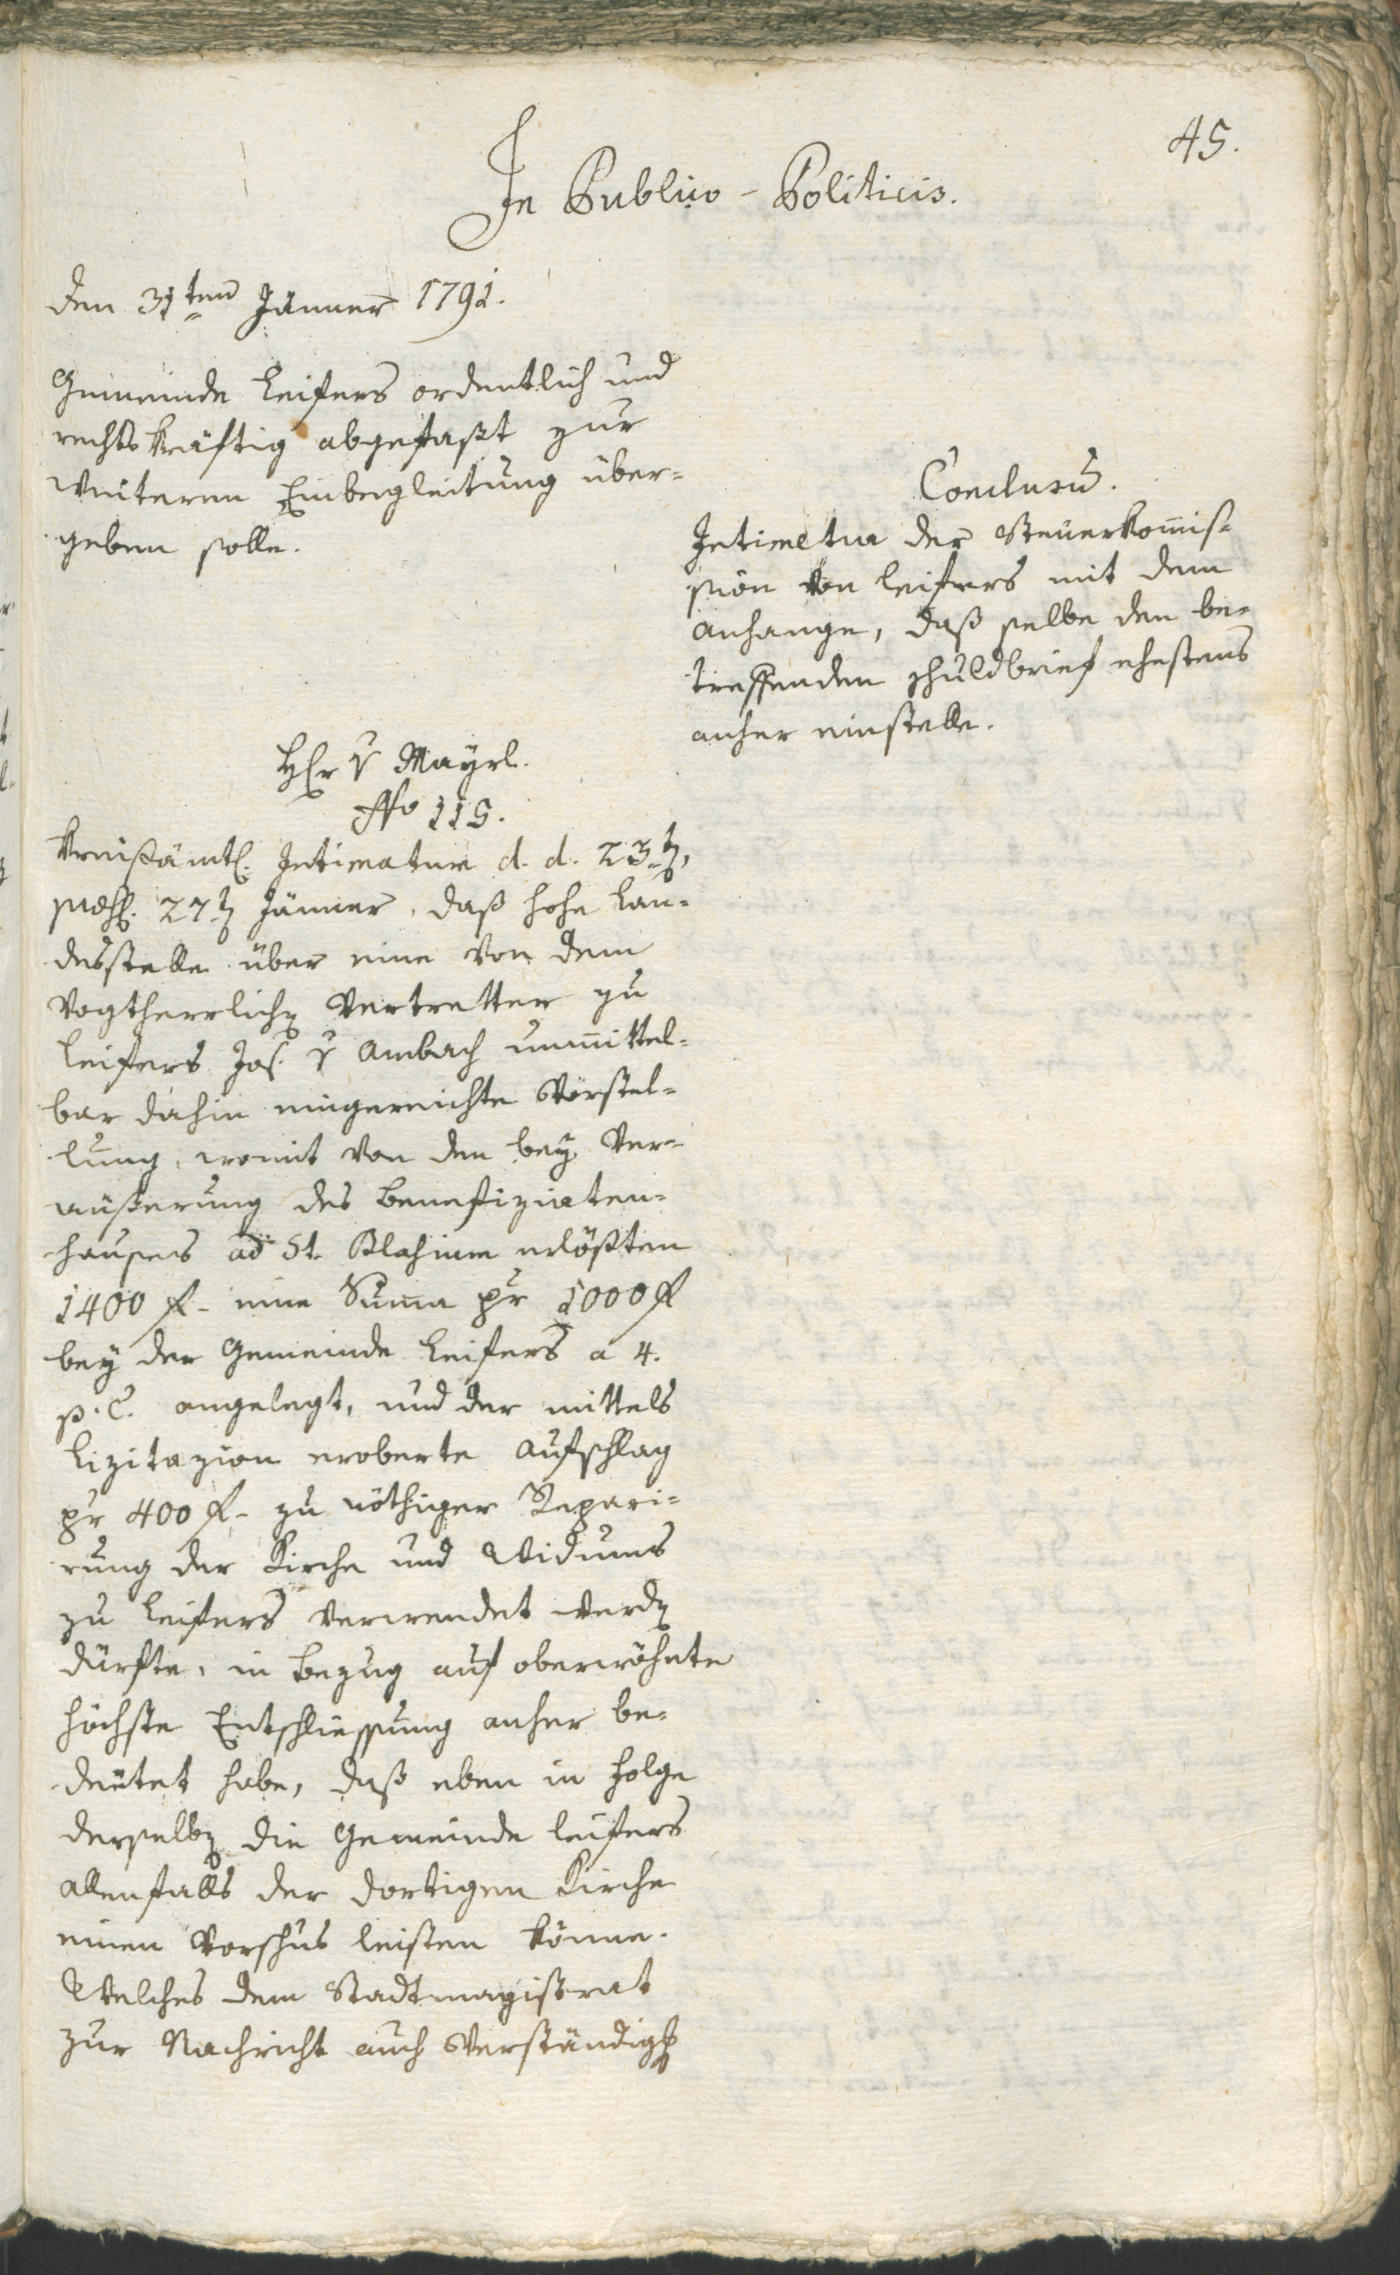 45.
In Publico-Politicis.
den 31ten Jänner 1791.
Gemeinde Leifers ordentlich und
rechtskräftig abgefaßt zur
weiteren Einbegleitung über-
geben solle.
Conclusũ.
Intimetur der Steuerkom̄is-
sion von Leifers mit dem
Anhange, daß selbe den be-
treffenden Schuldbrief ehestens
anher einstelle.
H̃r v Mayrl.
No 115.
Kreißämtl. Intimatum d. d. 23t,
27t Jänner, daß hohe Lan-
desstelle über eine von dem
Vogtherrlichen Vertretter zu
Leifers Jos. v Ambach unmittel-
bar dahin eingereichte Vorstel-
lung, womit von den bey Ver-
äußerung des Benefiziaten-
hauses ad St. Blasium erlößten
1400 f- eine Sum̄a pr 1000 f
bey der Gemeinde Leifers a 4.
p. C. angelegt, und der mittels
Lizitazion eroberte Aufschlag
pr 400 f- zu nöthiger Repari-
rung der Kirche und Widums
zu Leifers verwendet werden
dürfte, in Bezug auf oberwöhnte
höchste Entschliessung anher be-
deutet habe, daß eben in Folge
derselben die Gemeinde Leifers
allenfalls der dortigen Kirche
einen Vorschus leisten könne.
Welches dem Stadtmagistrat
zur Nachricht auch Verständigung